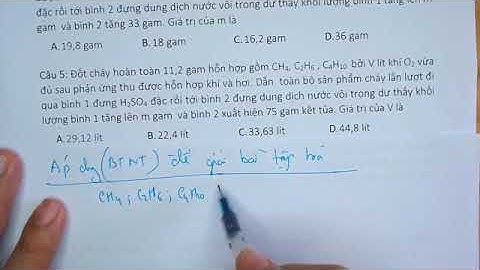 đặc rồi tới bình 2 đựng dung dịch nước vôi trong dư thấy khối lượng bình 1 tăng lên m
gam và bình 2 tăng 33 gam. Giá trị của m là
A.19,8 gam B.18 gam C.16,2 gam D.36 gam
Câu 5: Đốt cháy hoàn toàn 11,2 gam hỗn hợp gồm CH₄, C₂H₆, C₄H₁₀ bởi V lít khí O₂ vừa
đủ sau phản ứng thu được hỗn hợp khí và hơi. Dẫn toàn bộ sản phẩm cháy lần lượt đi
qua bình 1 đựng H₂SO₄ đặc rồi tới bình 2 đựng dung dịch nước vôi trong dư thấy khối
lượng bình 1 tăng lên m gam và bình 2 xuất hiện 75 gam kết tủa. Giá trị của V là
A.29,12 lít B.22,4 lít C.33,63 lít D.44,8 lít
Áp dụng (BTNT) để giải bài tập hoá
CH₄, C₂H₆, C₄H₁₀